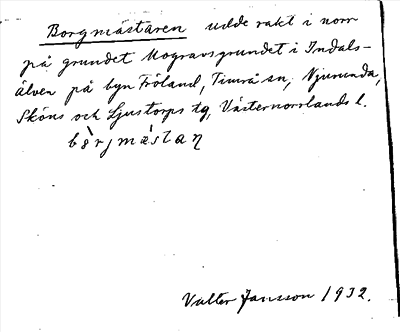 Borgmästaren udde rakt i norr
på grundet Mogravsgrundet i Indals-
älven på byn Fröland, Timrå sn, Njurunda,
Sköns och Ljustorps tg, Västernorrlands l.
bòrjmástaη
Valter Jansson 1932.